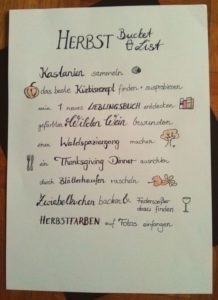 HERBST Bucket List
Kastanien sammeln
das beste Kürbisrezept finden + ausprobieren
mein 1 neues LIEBLINGSBUCH entdecken
gefärbten Wilden Wein bewundern
einen Waldspaziergang machen
ein Thanksgiving Dinner ausrichten
durch Blätterhaufen rascheln
Zwiebelkuchen backen & Federweißer dazu finden
HERBSTFARBEN auf Fotos einfangen